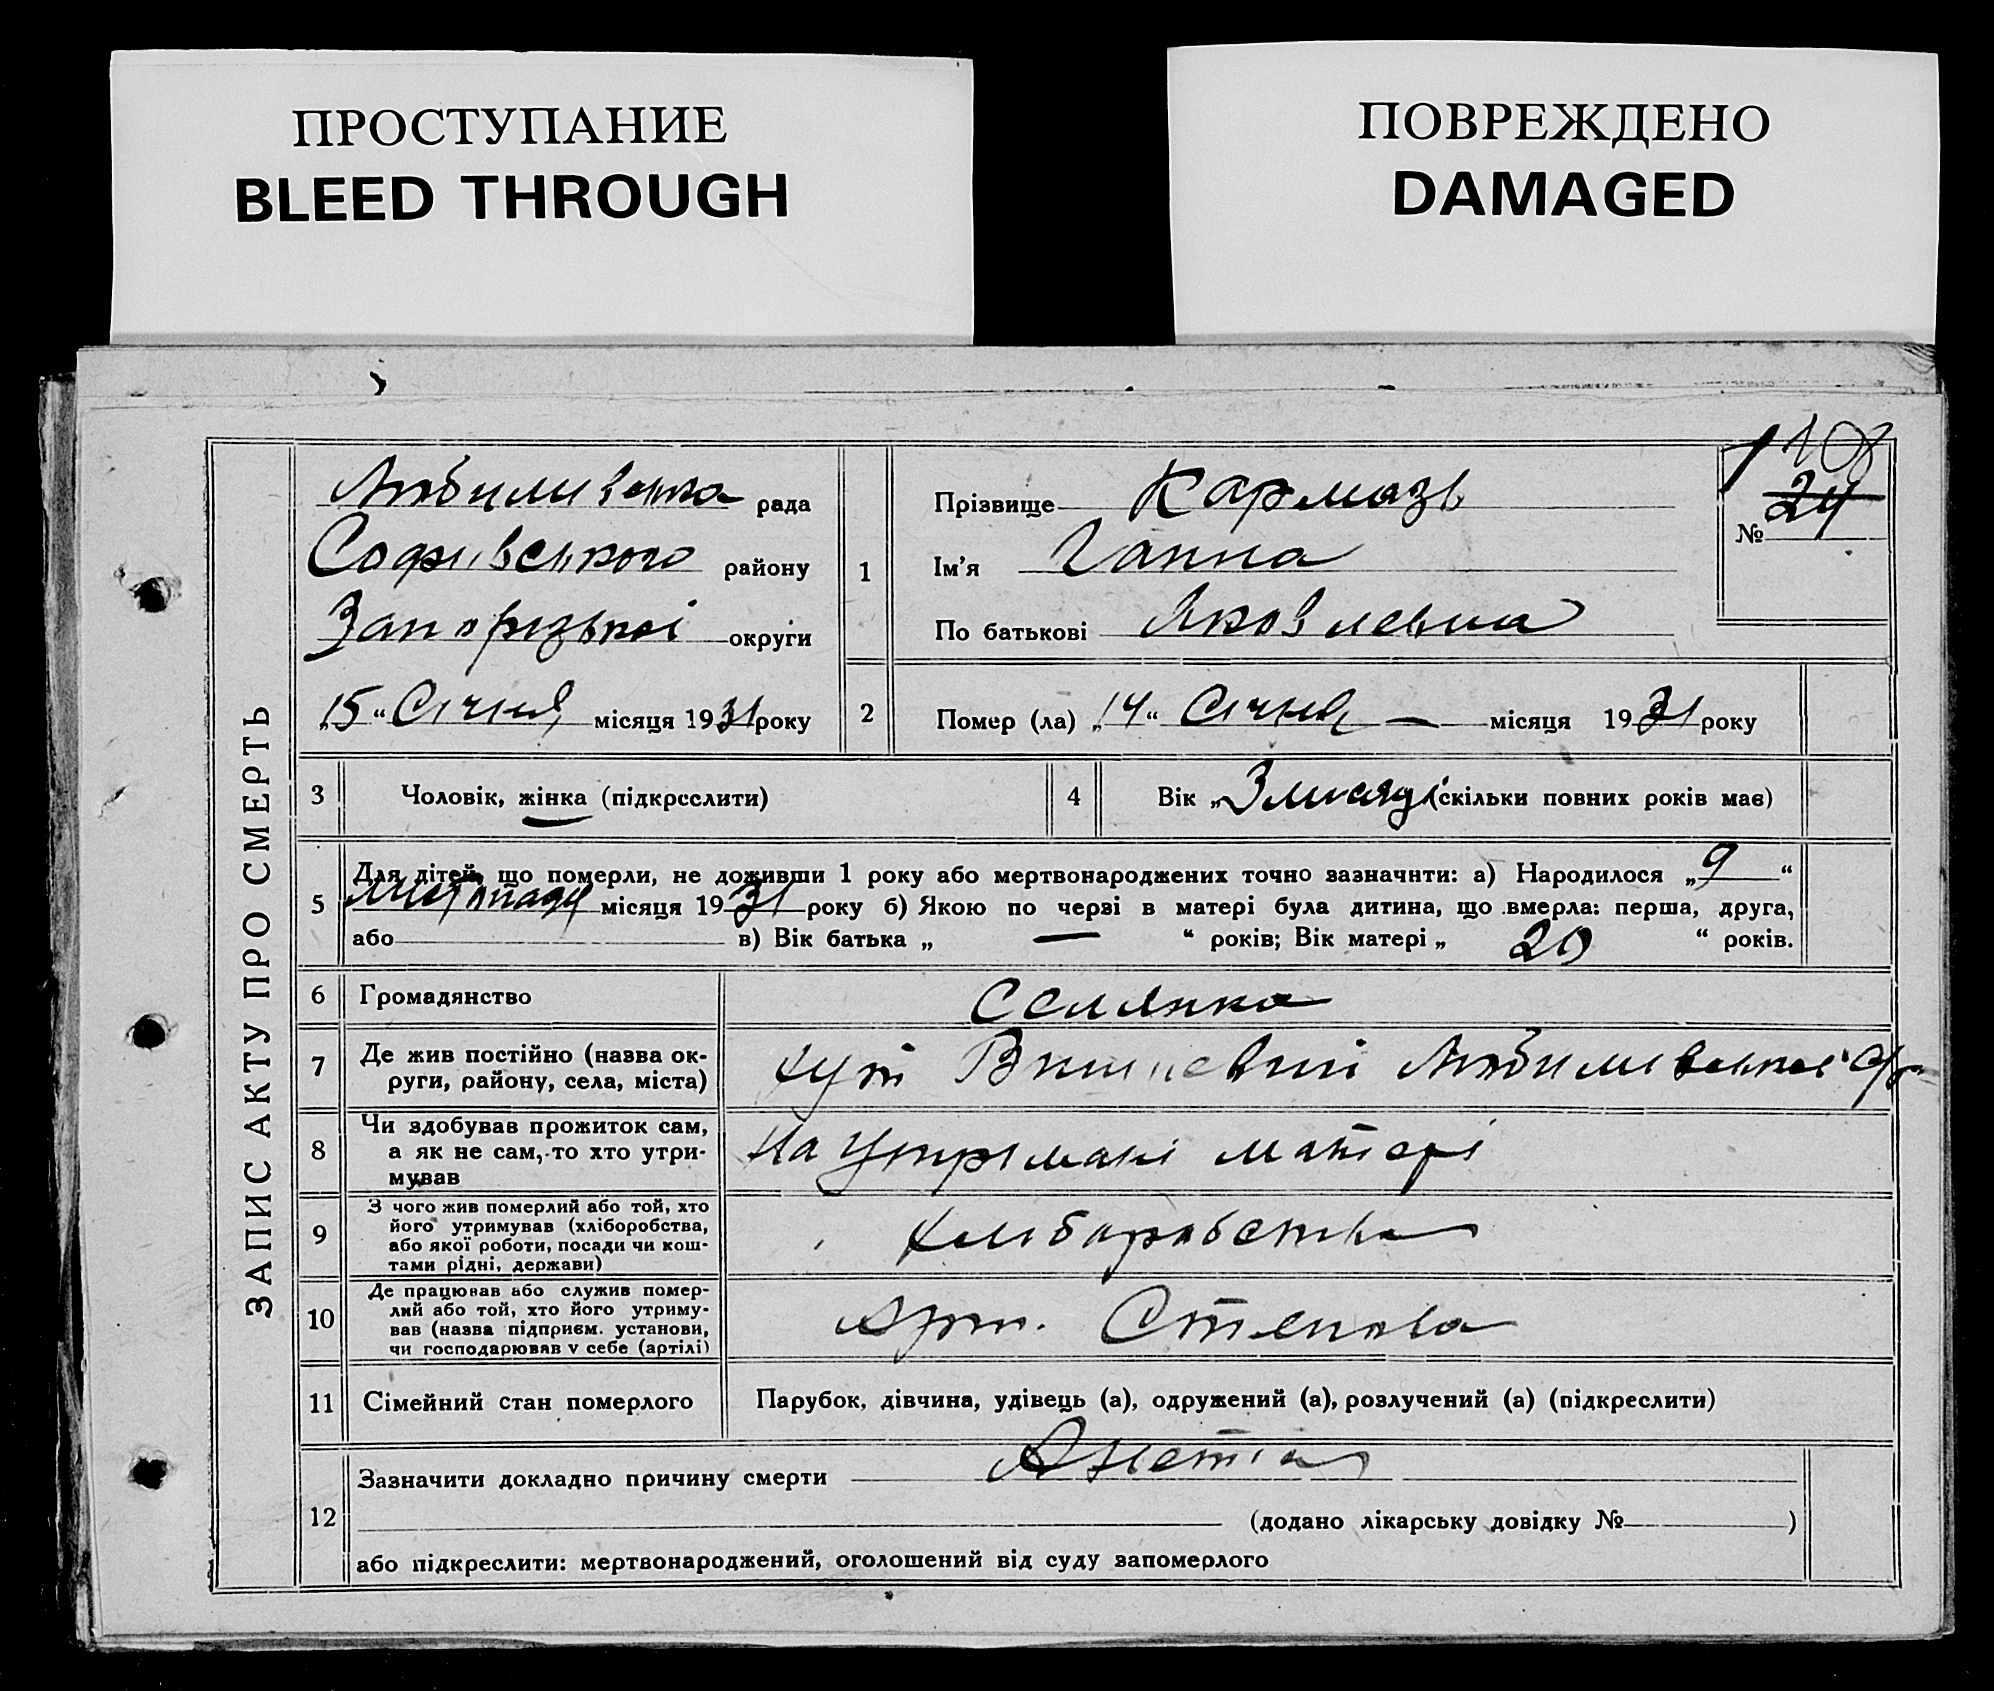 ПРОСТУПАНИЕ
BLEED THROUGH
ПОВРЕЖДЕНО
DAMAGED
ЗАПИС АКТУ ПРО СМЕРТЬ
Любимивська рада
Софиівського району
Запорізькоі округи
„15“ Січня місяця 1931 року
1
Прізвище Кармазь
Ім'я Ганна
По батькові Яковлевна
108
№ 24
2
Помер (ла) „14“ Січня — місяця 1931 року
3 Чоловік, жінка (підкреслити)
4 Вік „3 мисяці (скільки повних років має)
5 Для дітей, що померли, не доживши 1 року або мертвонароджених точно зазначити: а) Народилося „9“
Листопада місяця 1931 року б) Якою по черзі в матері була дитина, що вмерла: перша, друга,
або в) Вік батька „ — “ років; Вік матері „ 20 “ років.
6 Громадянство Селянка
7 Де жив постійно (назва ок-
руги, району, села, міста)
хут Вишневий Любимивськоі с/р
8 Чи здобував прожиток сам,
а як не сам, то хто утри-
мував
На утримані матері
9 З чого жив померлий або той, хто
його утримував (хліборобства,
або якої роботи, посади чи кош-
тами рідні, держави)
хлібаробства
10 Де працював або служив помер-
лий або той, хто його утриму-
вав (назва підприєм. установи,
чи господарював у себе (артілі)
Арт. Степова
11 Сімейний стан померлого Парубок, дівчина, удівець (а), одружений (а), розлучений (а) (підкреслити)
12 Зазначити докладно причину смерти
(додано лікарську довідку № )
або підкреслити: мертвонароджений, оголошений від суду запомерлого